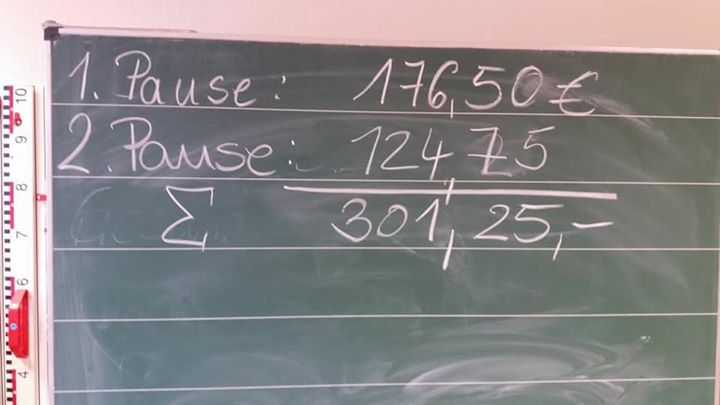 1. Pause: 176,50 €
2. Pause: 124,75
Σ 301,25,-
10
9
8
7
6
4